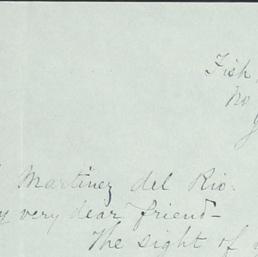 Fish
No
Martinez del Rio.
very dear friend-
The sight of